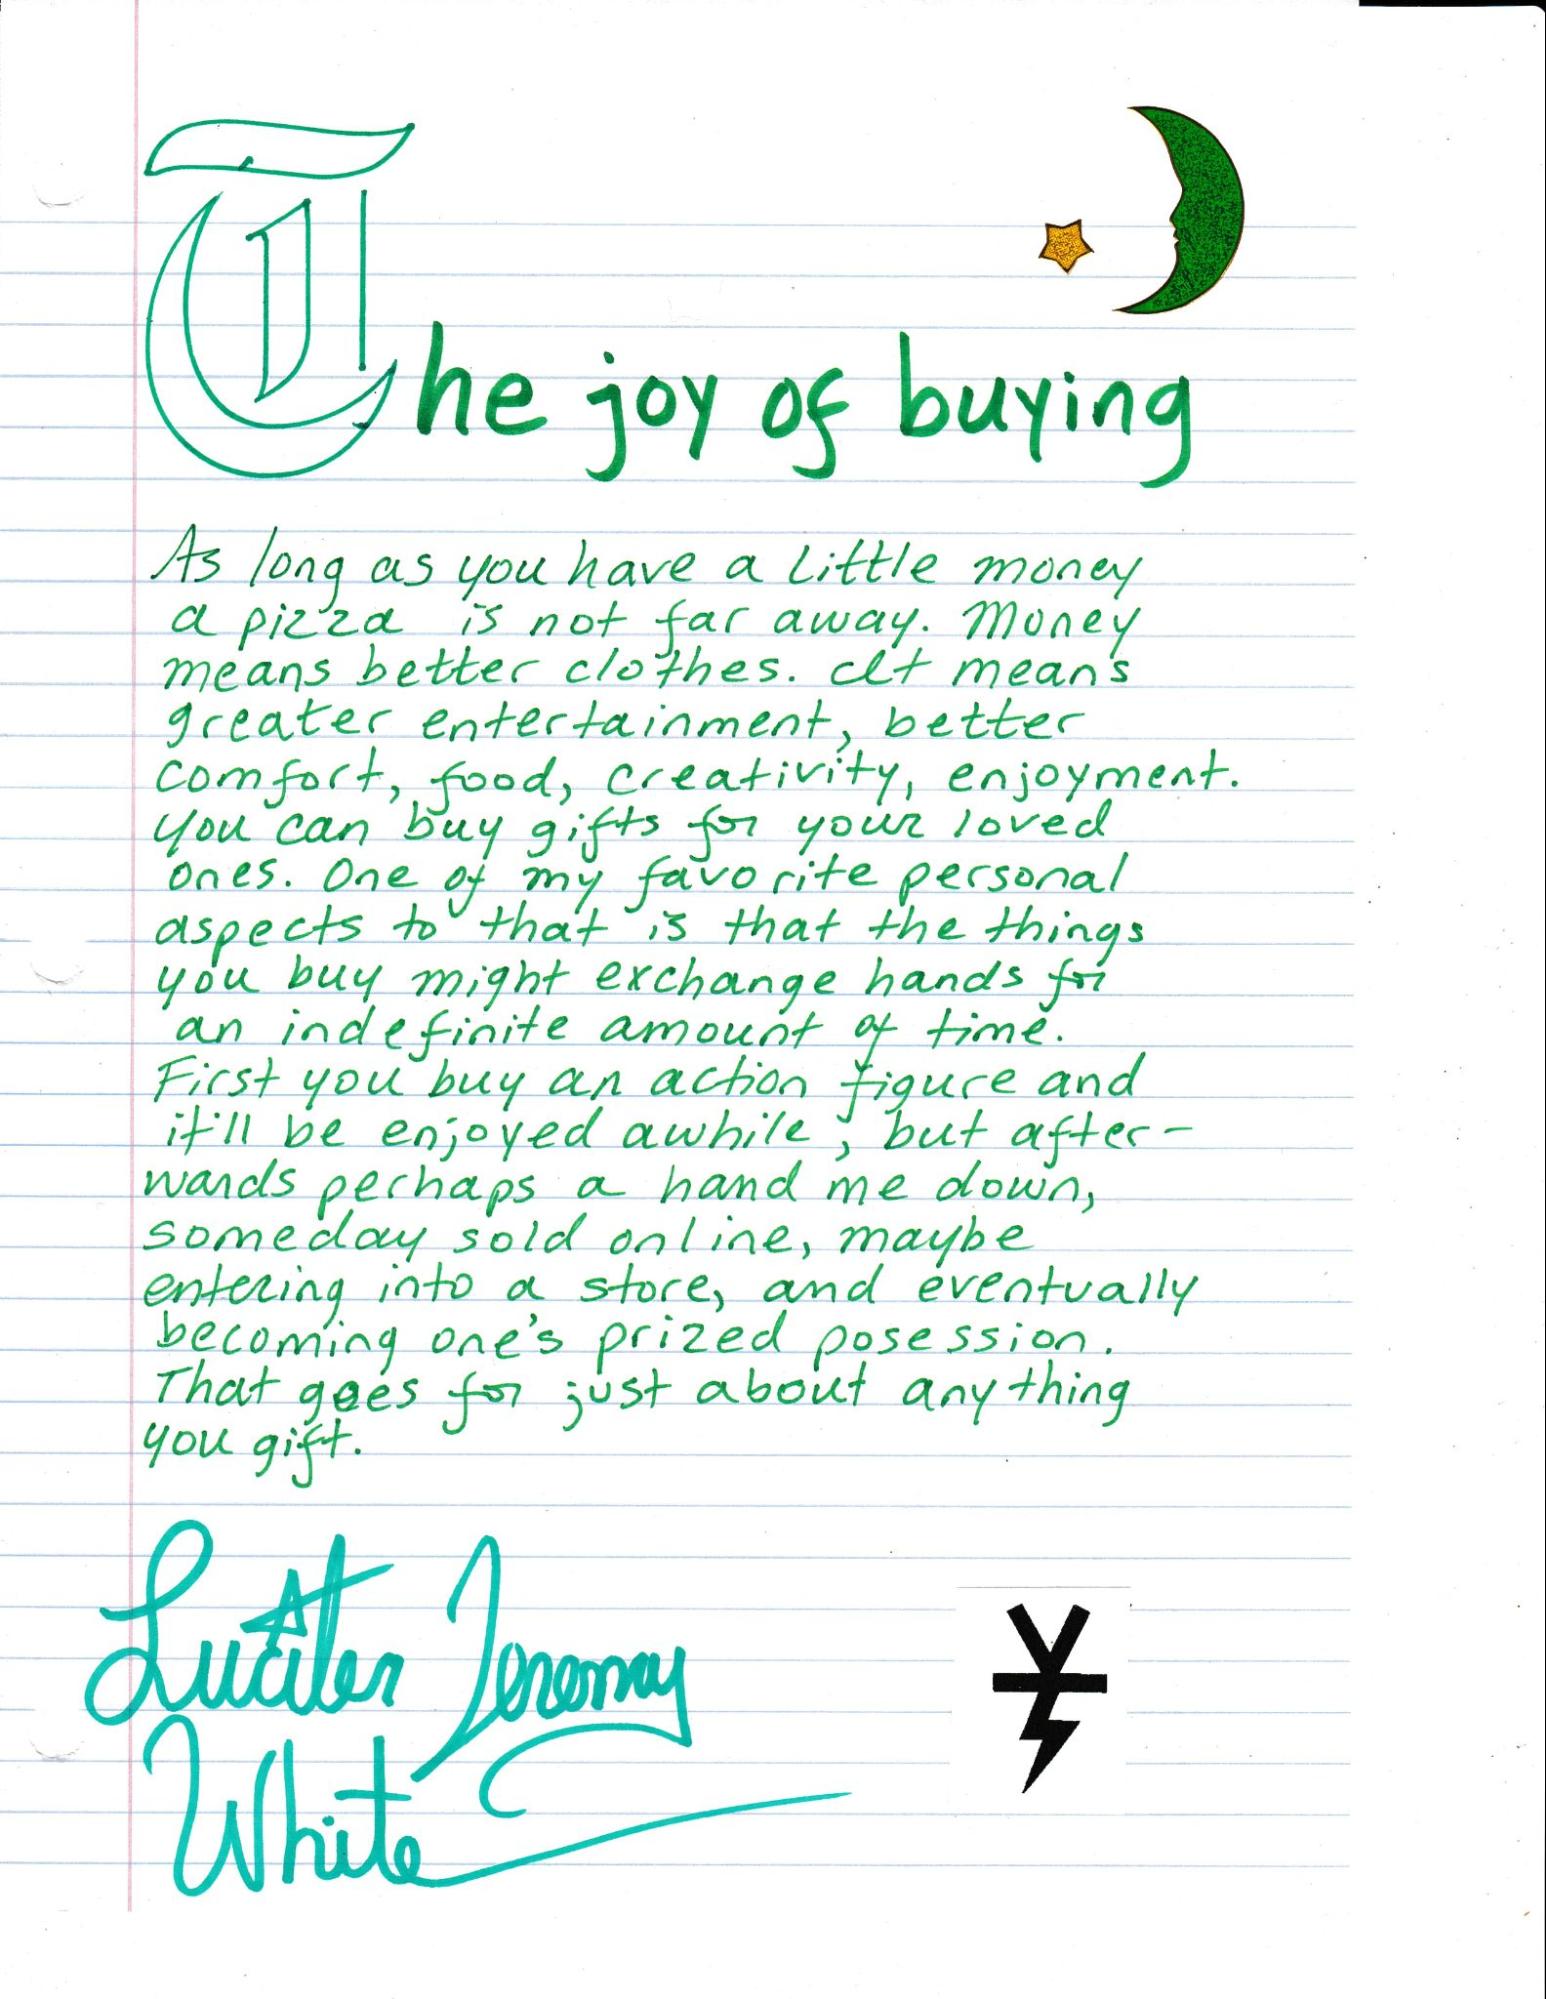 The joy of buying
As long as you have a little money
a pizza is not far away. Money
means better clothes. It means
greater entertainment, better
comfort, food, creativity, enjoyment.
You can buy gifts for your loved
ones. One of my favorite personal
aspects to that is that the things
you buy might exchange hands for
an indefinite amount of time.
First you buy an action figure and
it'll be enjoyed awhile, but after-
wards perhaps a hand me down,
someday sold online, maybe
entering into a store, and eventually
becoming one's prized posession.
That goes for just about anything
you gift.
Lucifer Jeremy
White